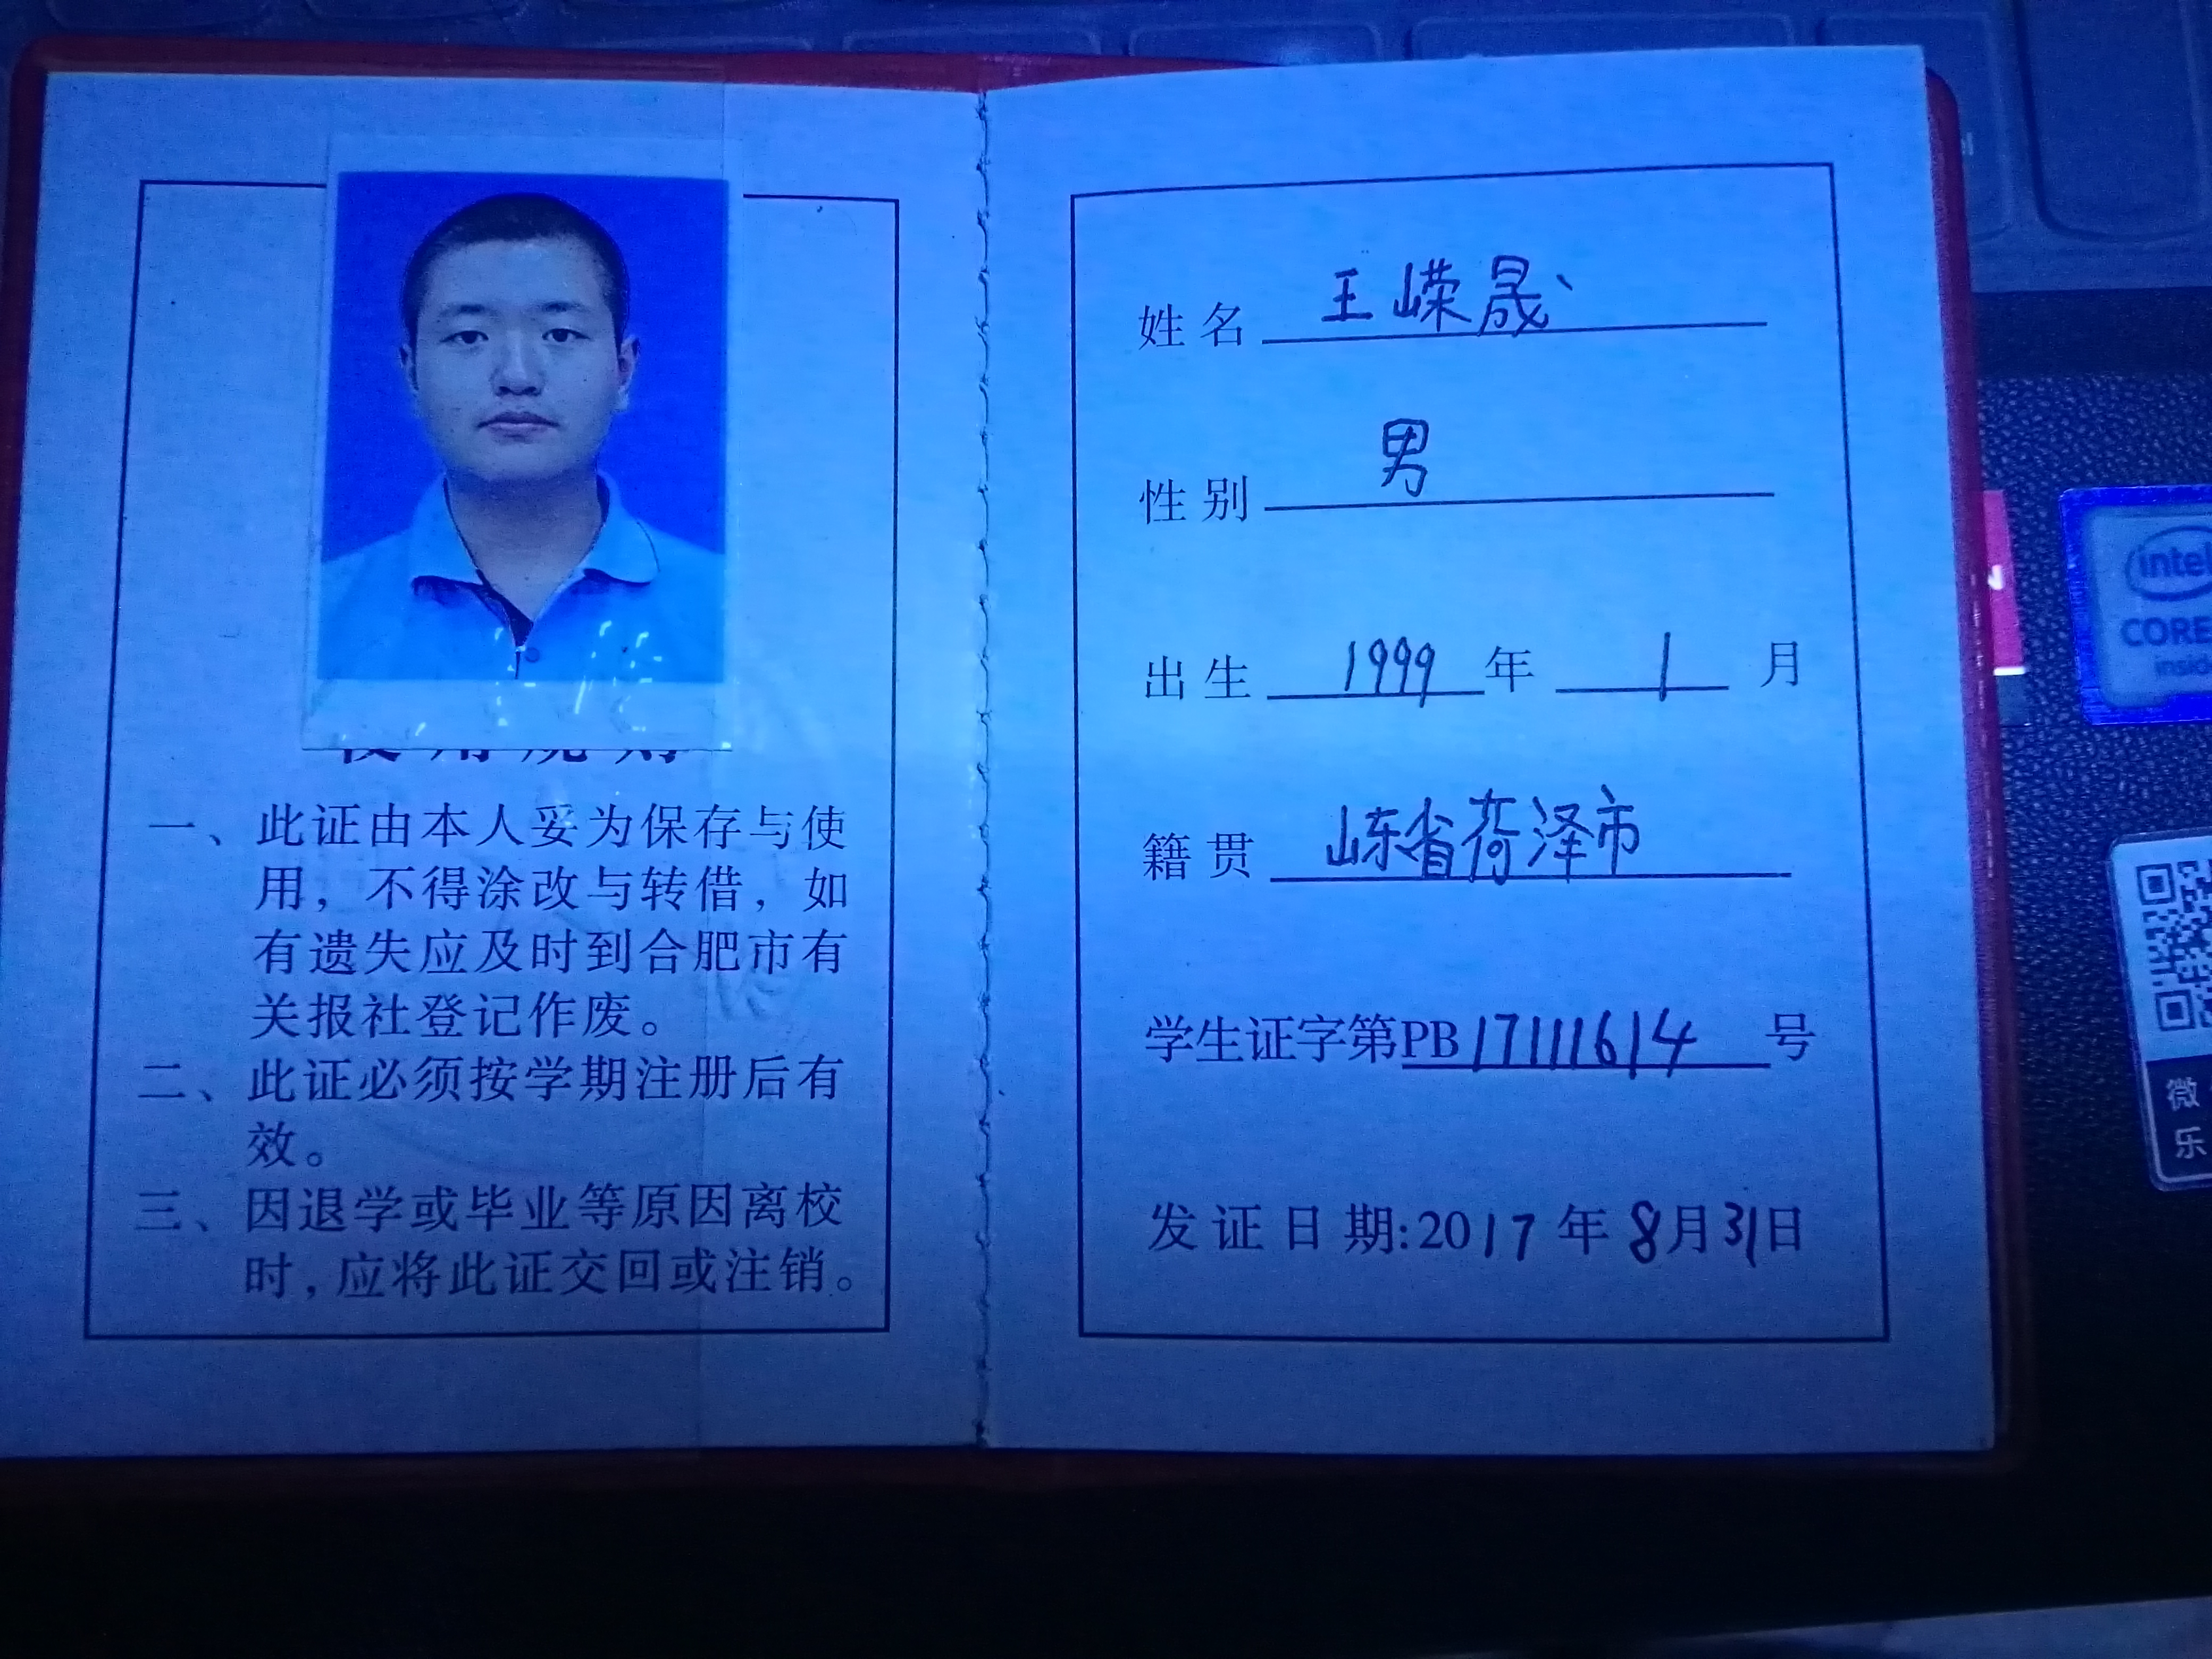 使用规则
一、此证由本人妥为保存与使
用，不得涂改与转借，如
有遗失应及时到合肥市有
关报社登记作废。
二、此证必须按学期注册后有
效。
三、因退学或毕业等原因离校
时，应将此证交回或注销。
姓名 王嵘晟
性别 男
出生 1999 年 1 月
籍贯 山东省菏泽市
学生证字第PB17111614 号
发证日期:2017 年 8月31日
intel
CORE
inside
微
乐